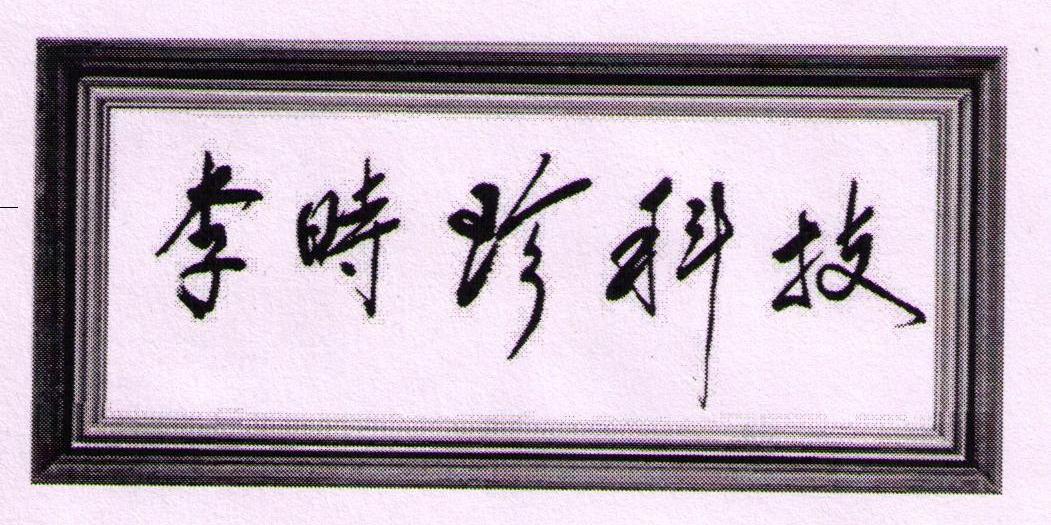 李時珍科技